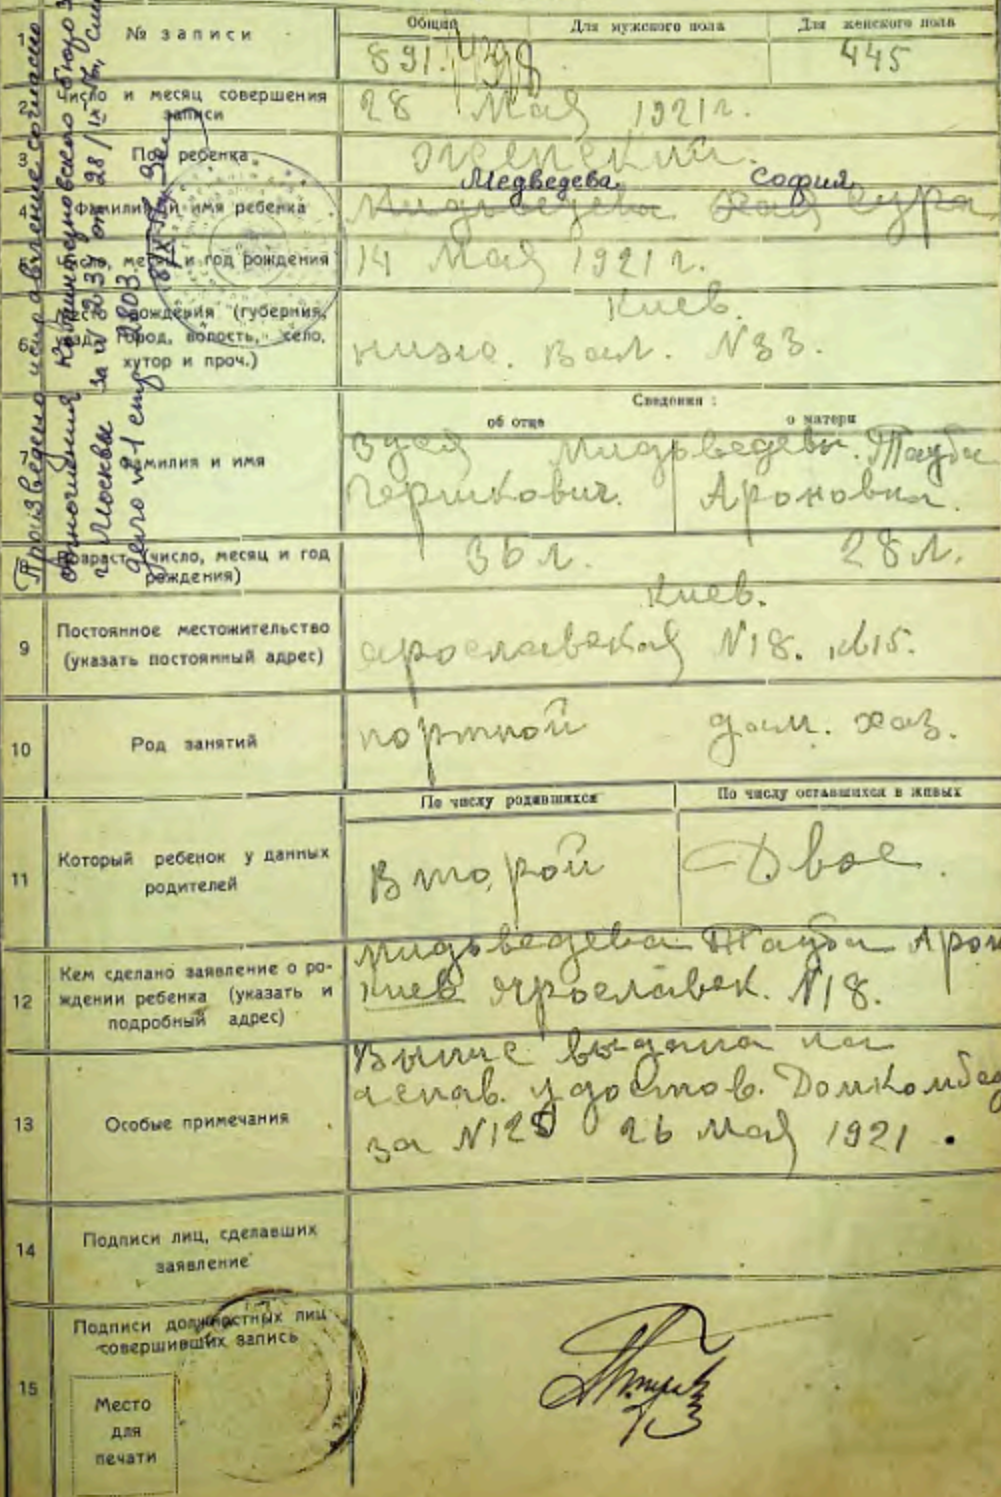 Произведено исправление согласно
заключения Коминтерновского бюро З
г. Москвы за № 237 от 28/IX
дело № 1 стр 2803.
1
№ записи
Общий
Для мужского пола
Для женского пола
891.
445
2
Число и месяц совершения
записи
28 Мая 1921 г.
3
Пол ребенка
Женский.
4
Фамилия и имя ребенка
Медведева София
Мидьведева Хая Сура
5
Число, месяц и год рождения
14 Мая 1921 г.
6
Место рождения (губерния,
город, волость, село,
хутор и проч.)
Киев.
нижн. Вал. N33.
7
Фамилия и имя
Сведения:
об отце
о матери
Зуся Мидьведевы. Тауба
Гершкович. Ароновна.
8
Возраст (число, месяц и год
рождения)
36 л.
28 л.
9
Постоянное местожительство
(указать постоянный адрес)
Киев.
Ярославская N18. кв15.
10
Род занятий
портной
дом. хоз.
11
Который ребенок у данных
родителей
По числу родившихся
По числу оставшихся в живых
Второй
Двое.
12
Кем сделано заявление о ро-
ждении ребенка (указать и
подробный адрес)
Мидьведева Тауба Арон
Киев Ярославск. N18.
13
Особые примечания
выдана на
удостов. Домкомбед
за N125 26 Мая 1921.
14
Подписи лиц, сделавших
заявление
15
Подписи должностных лиц
совершивших запись
Место
для
печати